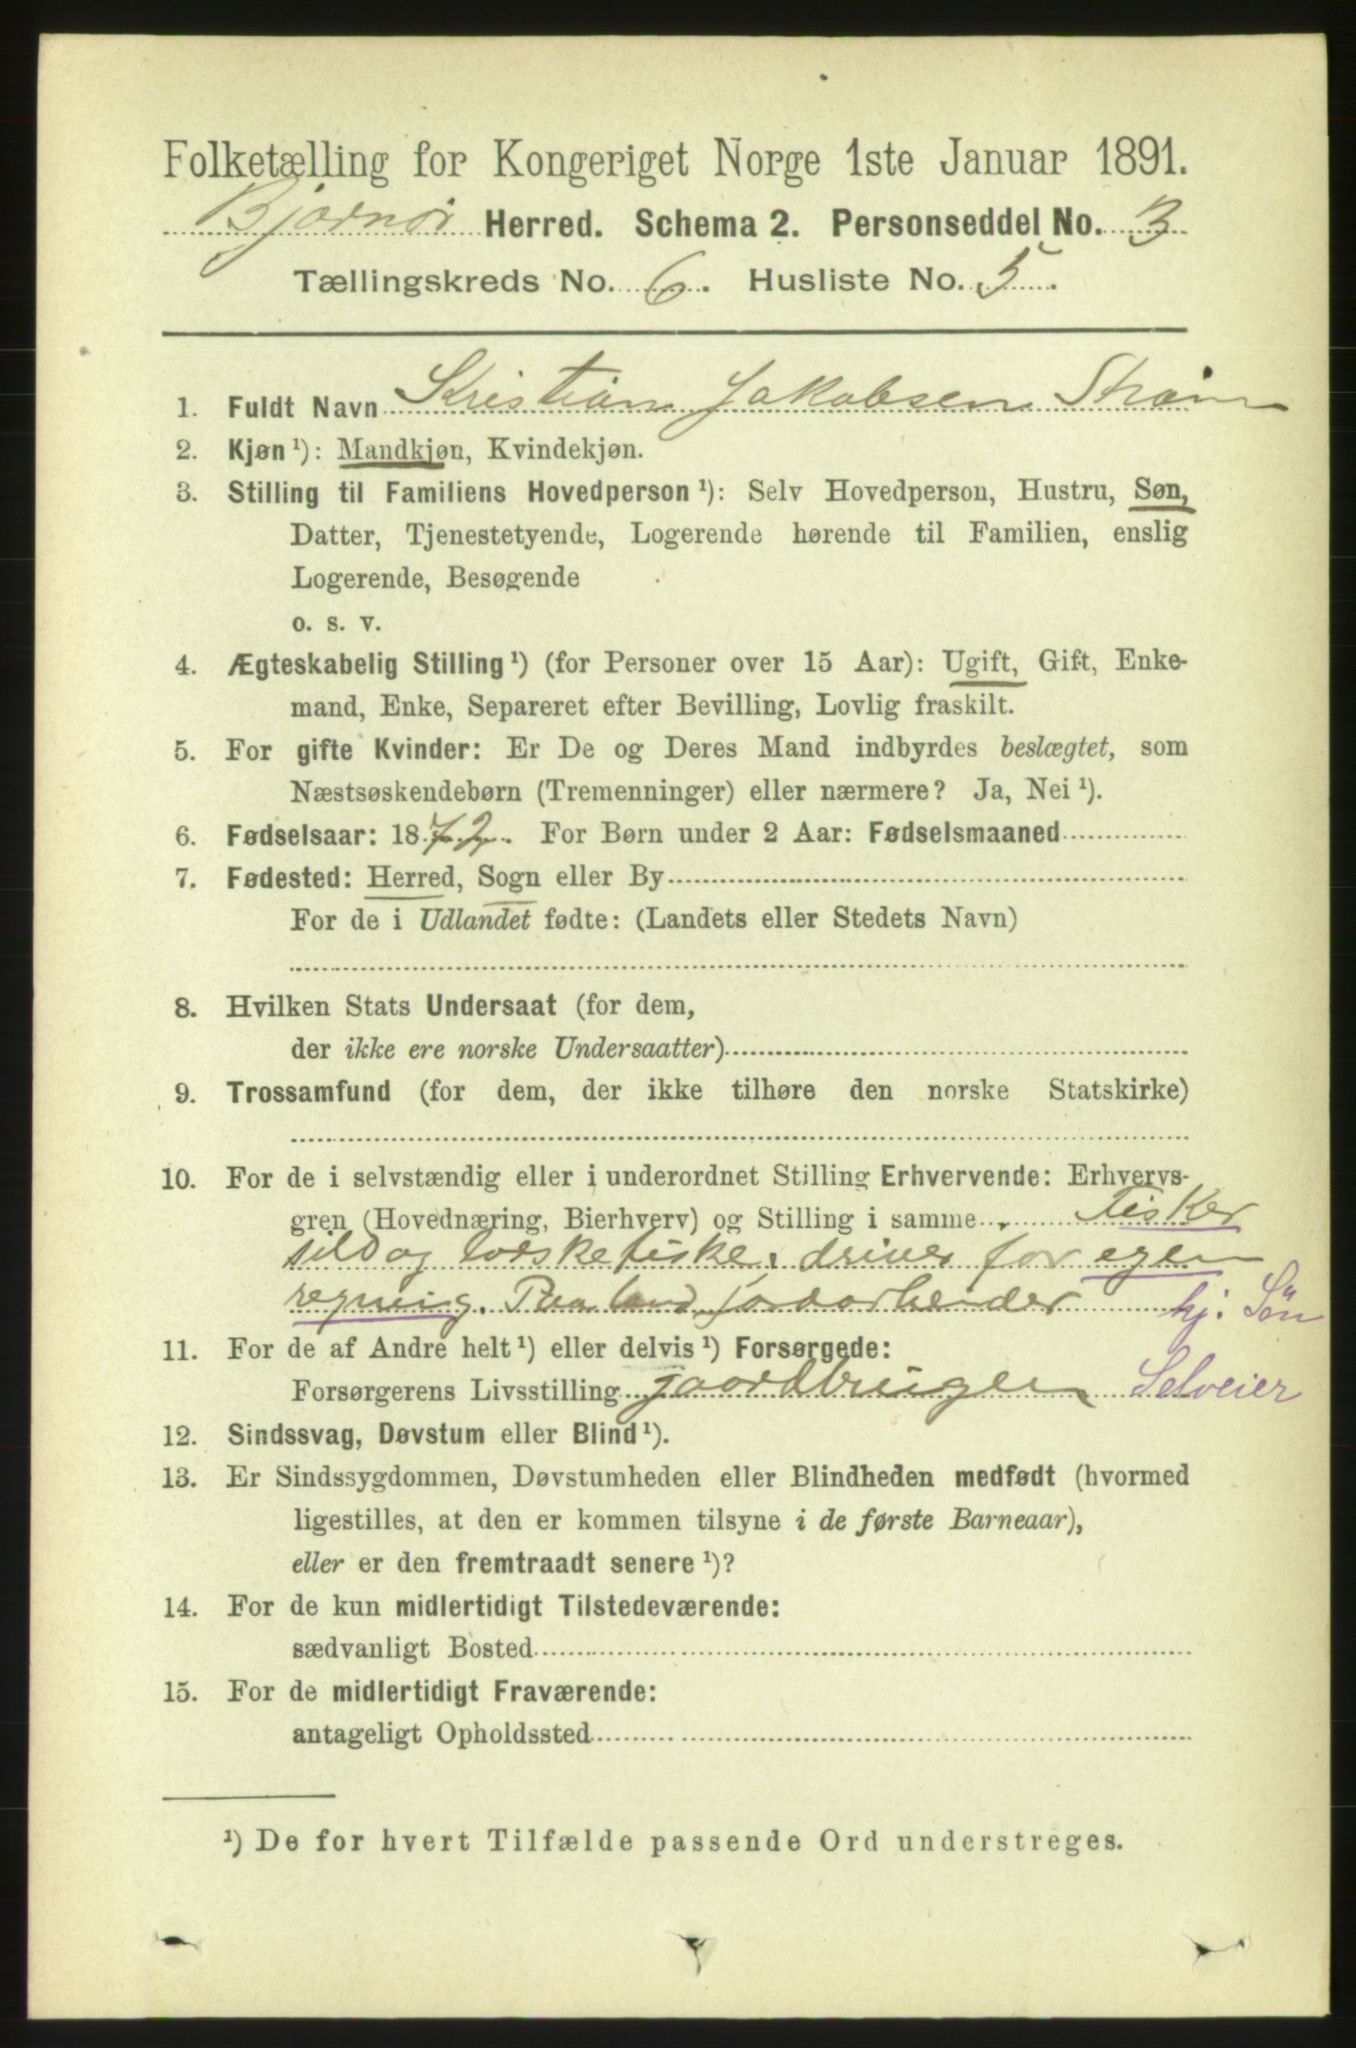 Folketælling for Kongeriget Norge 1ste Januar 1891.
Bjørnør Herred. Schema 2. Personseddel No. 3
Tællingskreds No. 6. Husliste No. 5.
1. Fuldt Navn Kristian Jakobsen Strøm
2. Kjøn ¹): Mandkjøn, Kvindekjøn.
3. Stilling til Familiens Hovedperson ¹): Selv Hovedperson, Hustru, Søn,
Datter, Tjenestetyende, Logerende hørende til Familien, enslig
Logerende, Besøgende
o. s. v.
4. Ægteskabelig Stilling ¹) (for Personer over 15 Aar): Ugift, Gift, Enke-
mand, Enke, Separeret efter Bevilling, Lovlig fraskilt.
5. For gifte Kvinder: Er De og Deres Mand indbyrdes beslægtet, som
Næstsøskendebørn (Tremenninger) eller nærmere? Ja, Nei ¹).
6. Fødselsaar: 1872. For Børn under 2 Aar: Fødselsmaaned
7. Fødested: Herred, Sogn eller By
For de i Udlandet fødte: (Landets eller Stedets Navn)
8. Hvilken Stats Undersaat (for dem,
der ikke ere norske Undersaatter)
9. Trossamfund (for dem, der ikke tilhøre den norske Statskirke)
10. For de i selvstændig eller i underordnet Stilling Erhvervende: Erhvervs-
gren (Hovednæring, Bierhverv) og Stilling i samme. Fisker
sild og torskefiske. driver for egen
regning. Paa land jordarbeider hj. Søn
11. For de af Andre helt ¹) eller delvis ¹) Forsørgede:
Forsørgerens Livsstilling gaardbruger Selveier
12. Sindssvag, Døvstum eller Blind ¹).
13. Er Sindssygdommen, Døvstumheden eller Blindheden medfødt (hvormed
ligestilles, at den er kommen tilsyne i de første Barneaar),
eller er den fremtraadt senere ¹)?
14. For de kun midlertidigt Tilstedeværende:
sædvanligt Bosted
15. For de midlertidigt Fraværende:
antageligt Opholdssted
¹) De for hvert Tilfælde passende Ord understreges.